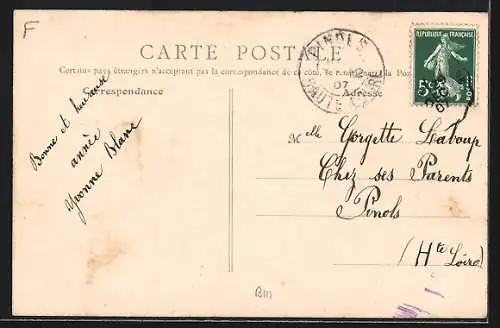 F
CARTE POSTALE
Certains pays étrangers n'acceptant pas la correspondance de ce côté, se renseigner à la Pos
Correspondance
Adresse
PINOLS
07
HAUTE LOIRE
REPUBLIQUE FRANÇAISE
5c
POSTES
07
Bonne et heureuse
année
Yvonne Blanc
Melle Georgette Laboup
Chez ses Parents
Pinols
(Hte Loire)